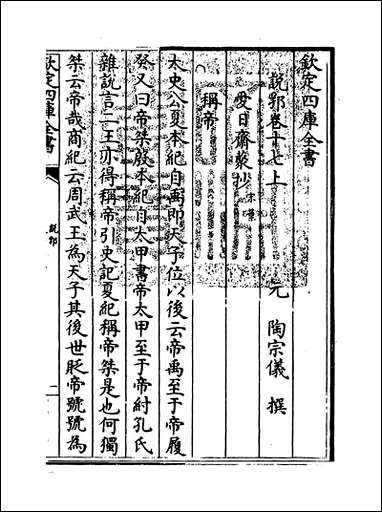 欽定四庫全書
說郛卷十七上
元 陶宗儀 撰
愛日齋藂抄 宋葉
稱帝
太史公夏本紀自禹即天子位以後云帝禹至于帝履
癸又曰帝桀殷本紀自太甲書帝太甲至于帝紂孔氏
雜說言二王亦得稱帝引史記夏紀稱帝桀是也何獨
桀云帝哉商紀云周武王為天子其後世貶帝號號為
欽定四庫全書
說郛